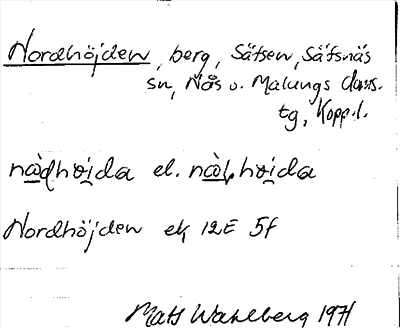 Nordhöjden, berg, Säfsen, Säfsnäs
sn, Nås o. Malungs doms.
tg, Kopp.l.
nàḍhøi̯da el. nàḷhøi̯da
Nordhöjden ek 12E 5f
Mats Wahlberg 1971